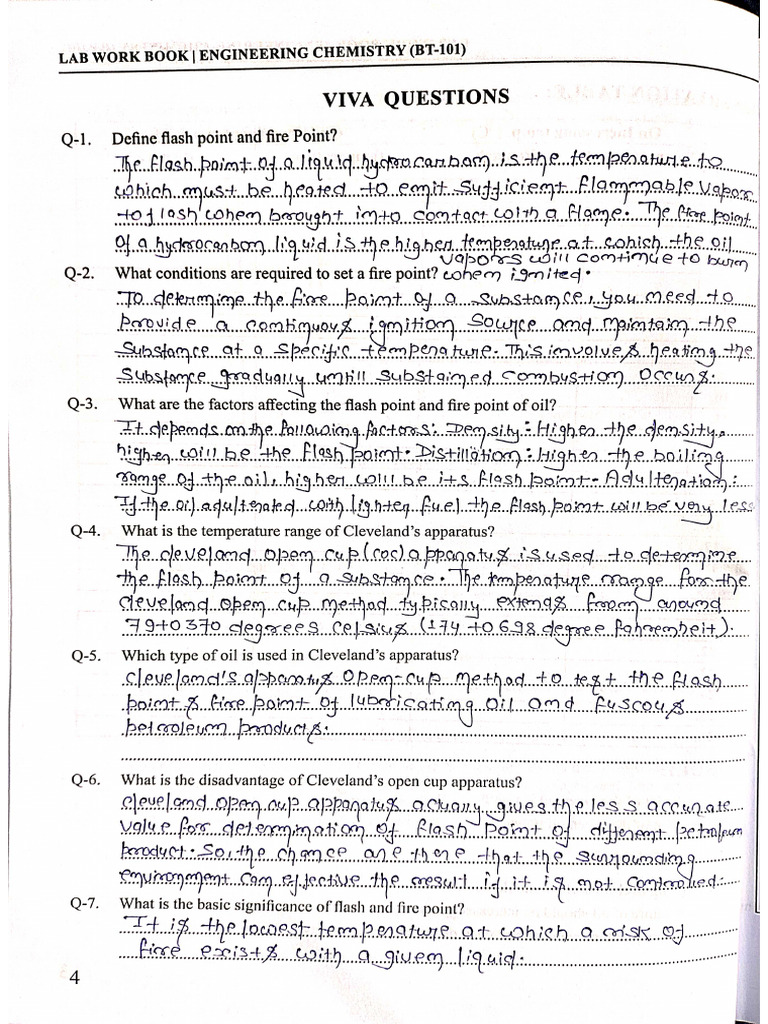 LAB WORK BOOK | ENGINEERING CHEMISTRY (BT-101)
VIVA QUESTIONS
Q-1. Define flash point and fire Point?
The flash point of a liquid hydrocarbon is the temperature to
which must be heated to emit sufficient flammable vapor
to flash when brought into contact with a flame. The fire point
of a hydrocarbon liquid is the higher temperature at which the oil
vapors will continue to burn
Q-2. What conditions are required to set a fire point? when ignited.
To determine the fire point of a substance, you need to
provide a continuous ignition source and maintain the
substance at a specific temperature. This involves heating the
substance gradually untill substained combustion occurs.
Q-3. What are the factors affecting the flash point and fire point of oil?
It depends on the following factors: Density: Higher the density,
higher will be the flash point. Distillation: Higher the boiling
range of the oil, higher will be its flash point. Adulteration:
If the oil adulterated with lighter fuel the flash point will be very less
Q-4. What is the temperature range of Cleveland's apparatus?
The cleveland open cup (coc) apparatus is used to determine
the flash point of a substance. The temperature range for the
cleveland open cup method typically extends from around
79 to 370 degrees celsius (174 to 698 degree fahrenheit).
Q-5. Which type of oil is used in Cleveland's apparatus?
cleveland's apparatus open-cup method to test the flash
point & fire point of lubricating oil and fuscous
petroleum products.
Q-6. What is the disadvantage of Cleveland's open cup apparatus?
cleveland open cup apparatus actually gives the less accurate
value for determination of flash point of different petroleum
product. So, the chance are there that the surrounding
environment can effective the result if it is not controlled.
Q-7. What is the basic significance of flash and fire point?
It is the lowest temperature at which a risk of
fire exists with a given liquid.
4